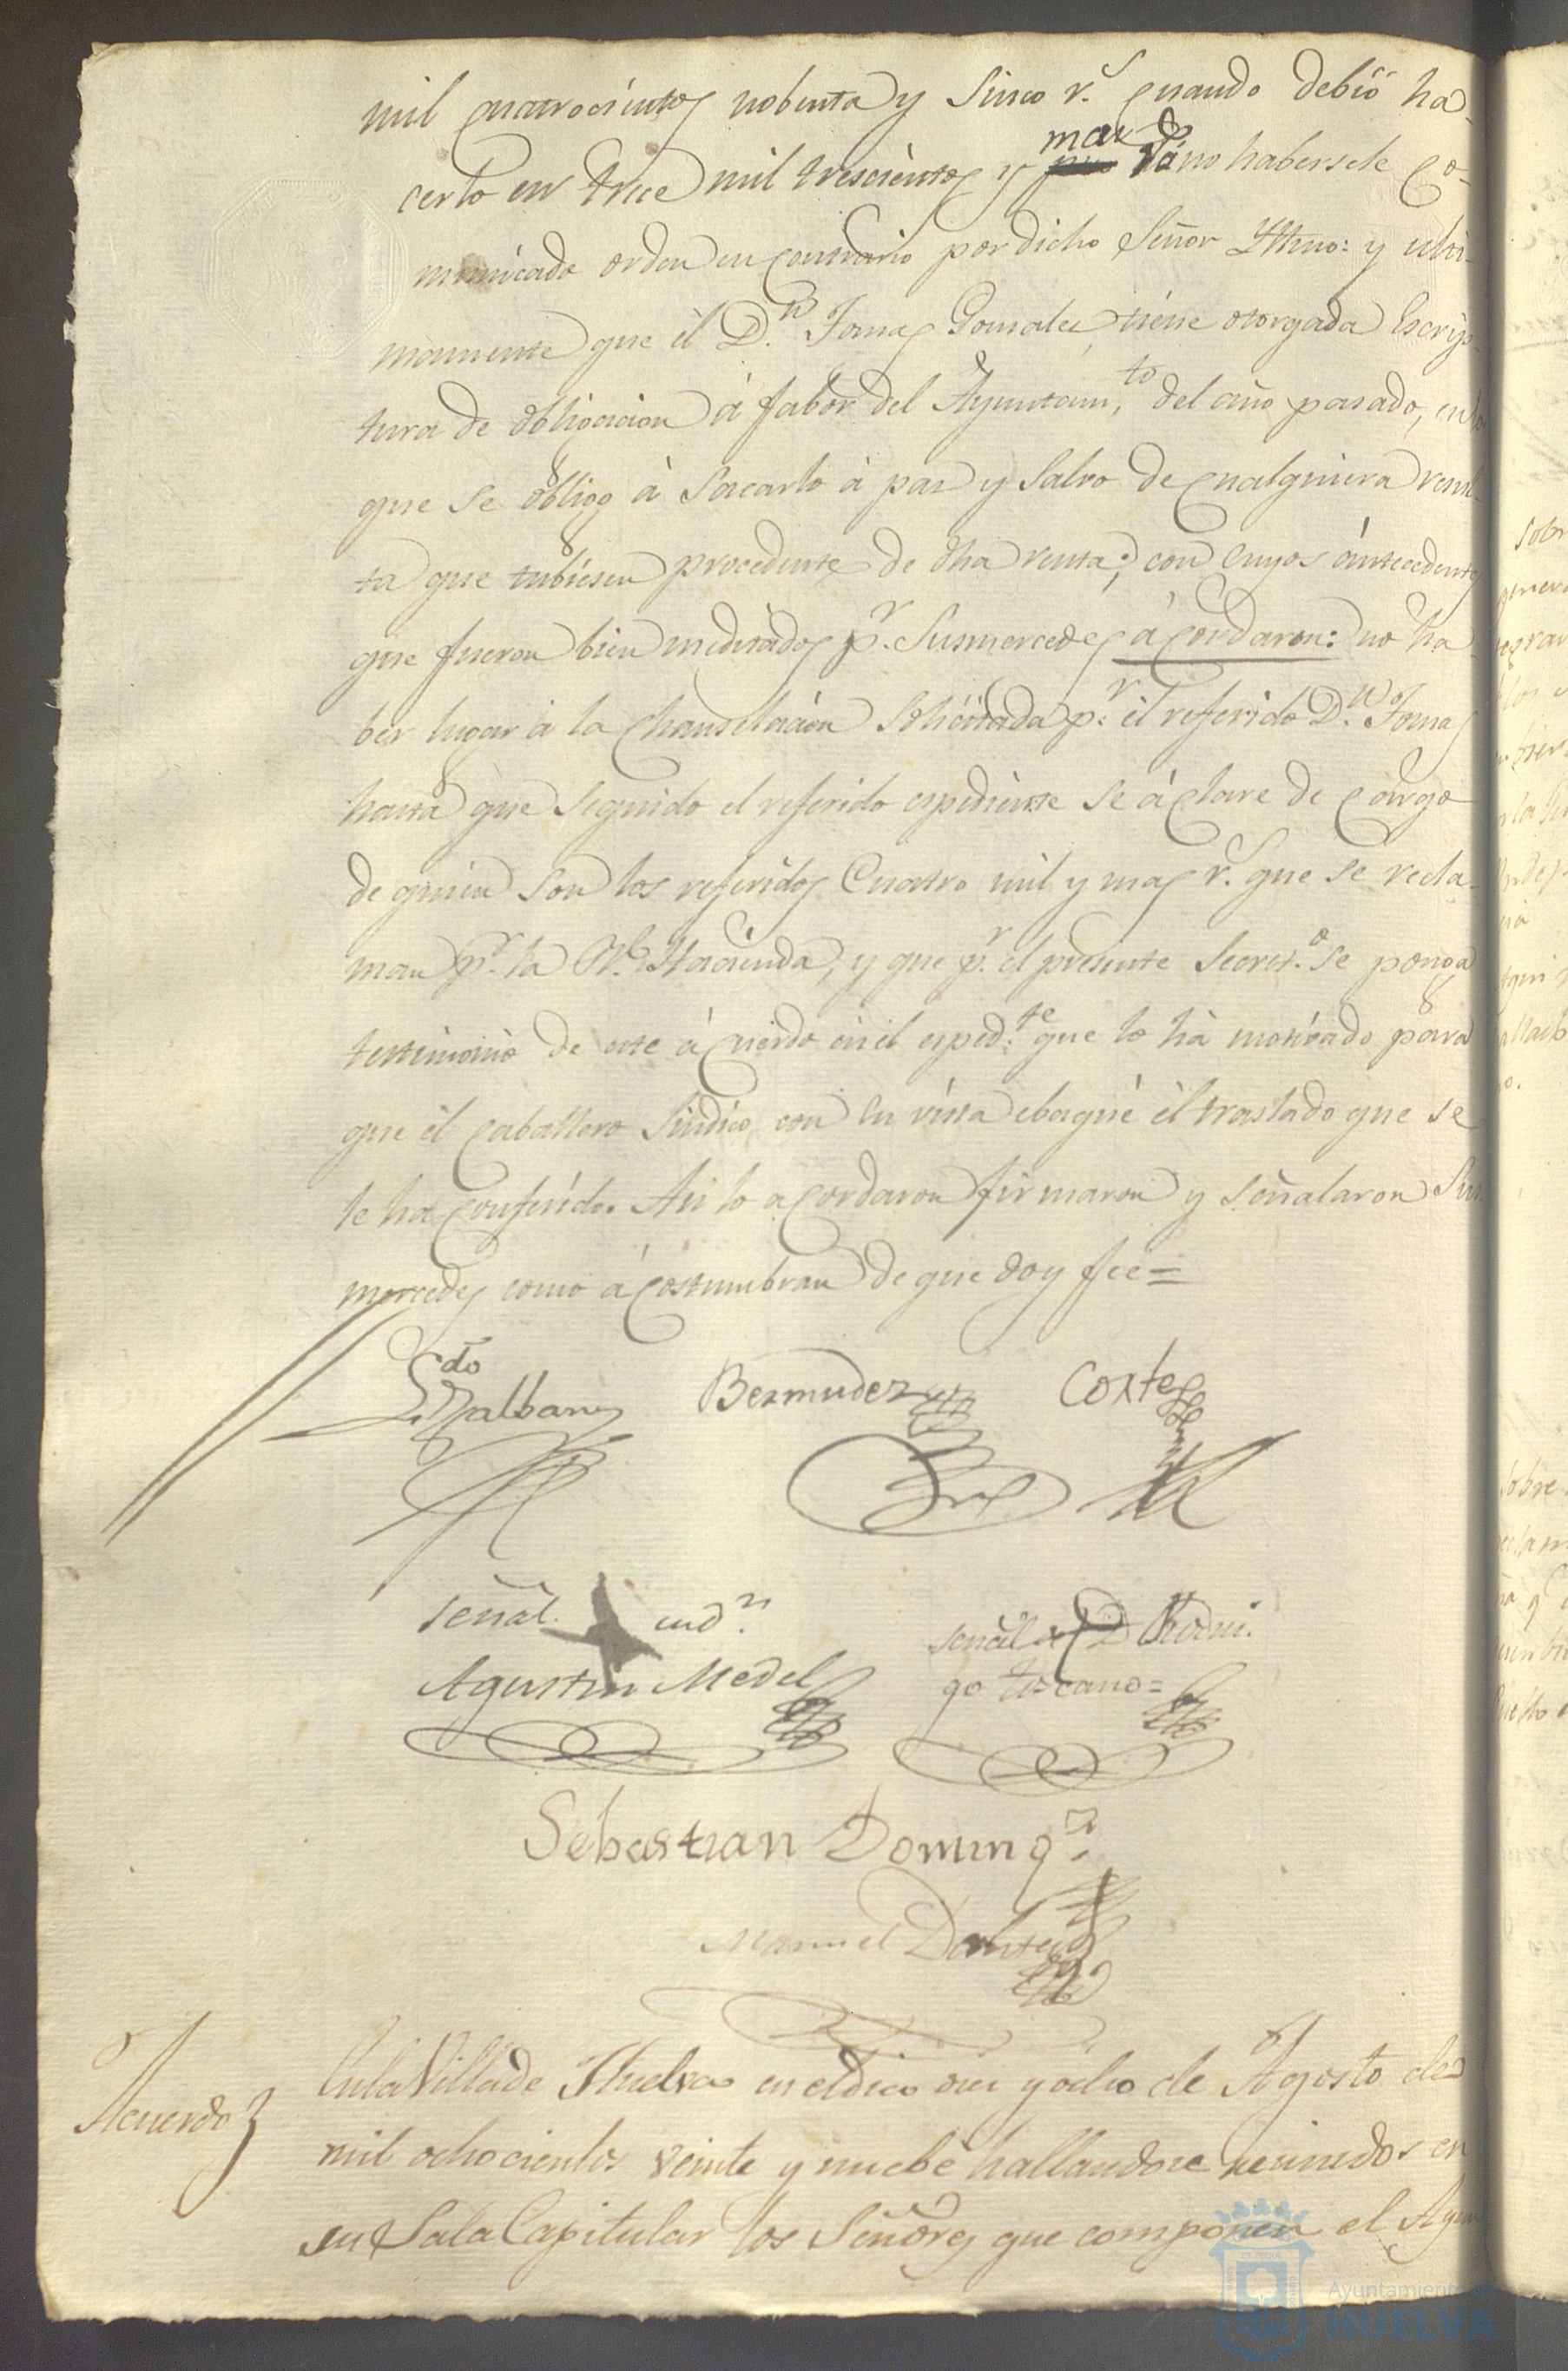 mil quatrocientos nobenta y Sinco r.s quando debió ha-
cerlo en trece mil trescientos y mas r.s no habersele co-
municado orden en contrario por dicho Señor Yttmo: y ulti-
mamente que él D.n Tomas Gonzalez, tiene otorgada Escrip-
tura de obligacion á fabor del Ayuntam.to del año pasado, en la
que se obligó á Sacarlo á paz y Salvo de qualquiera resul-
ta que tubiesen procedente de dha renta; con cuyos ántecedentes
que fueron bien meditados p.r Susmercedes ácordaron: no ha
ber lugar á la chanselacion Solicitada p.r él referido D.n Tomas
hasta que seguido el referido espediente se áclare de cargo
de quien son los referidos Cuatro mil y mas r.s que se recla-
man p.r la R.l Hacienda, y que p.r el presente Secret.o se ponga
testimonio de este ácuerdo en el esped.te que lo há motivado para
que él caballero Sindico con su vista ebaqué él traslado que se
le ha conferido. Asi lo acordaron firmaron y señalaron Sus
mercedes como ácostumbran de que doy fee=
Lcdo
Galban
Bermudez
Cortes
señal
Agustin Medel
señal D Rodri-
go toscano=
Sebastian Doming.z
Manuel
Acuerdo
En la Villa de Huelva en el dia dies y ocho de Agosto de
mil ochocientos veinte y nuebe hallandose reunidos en
su Sala Capitular los Señores que componen el Ayun
Ayuntamiento
HUELVA